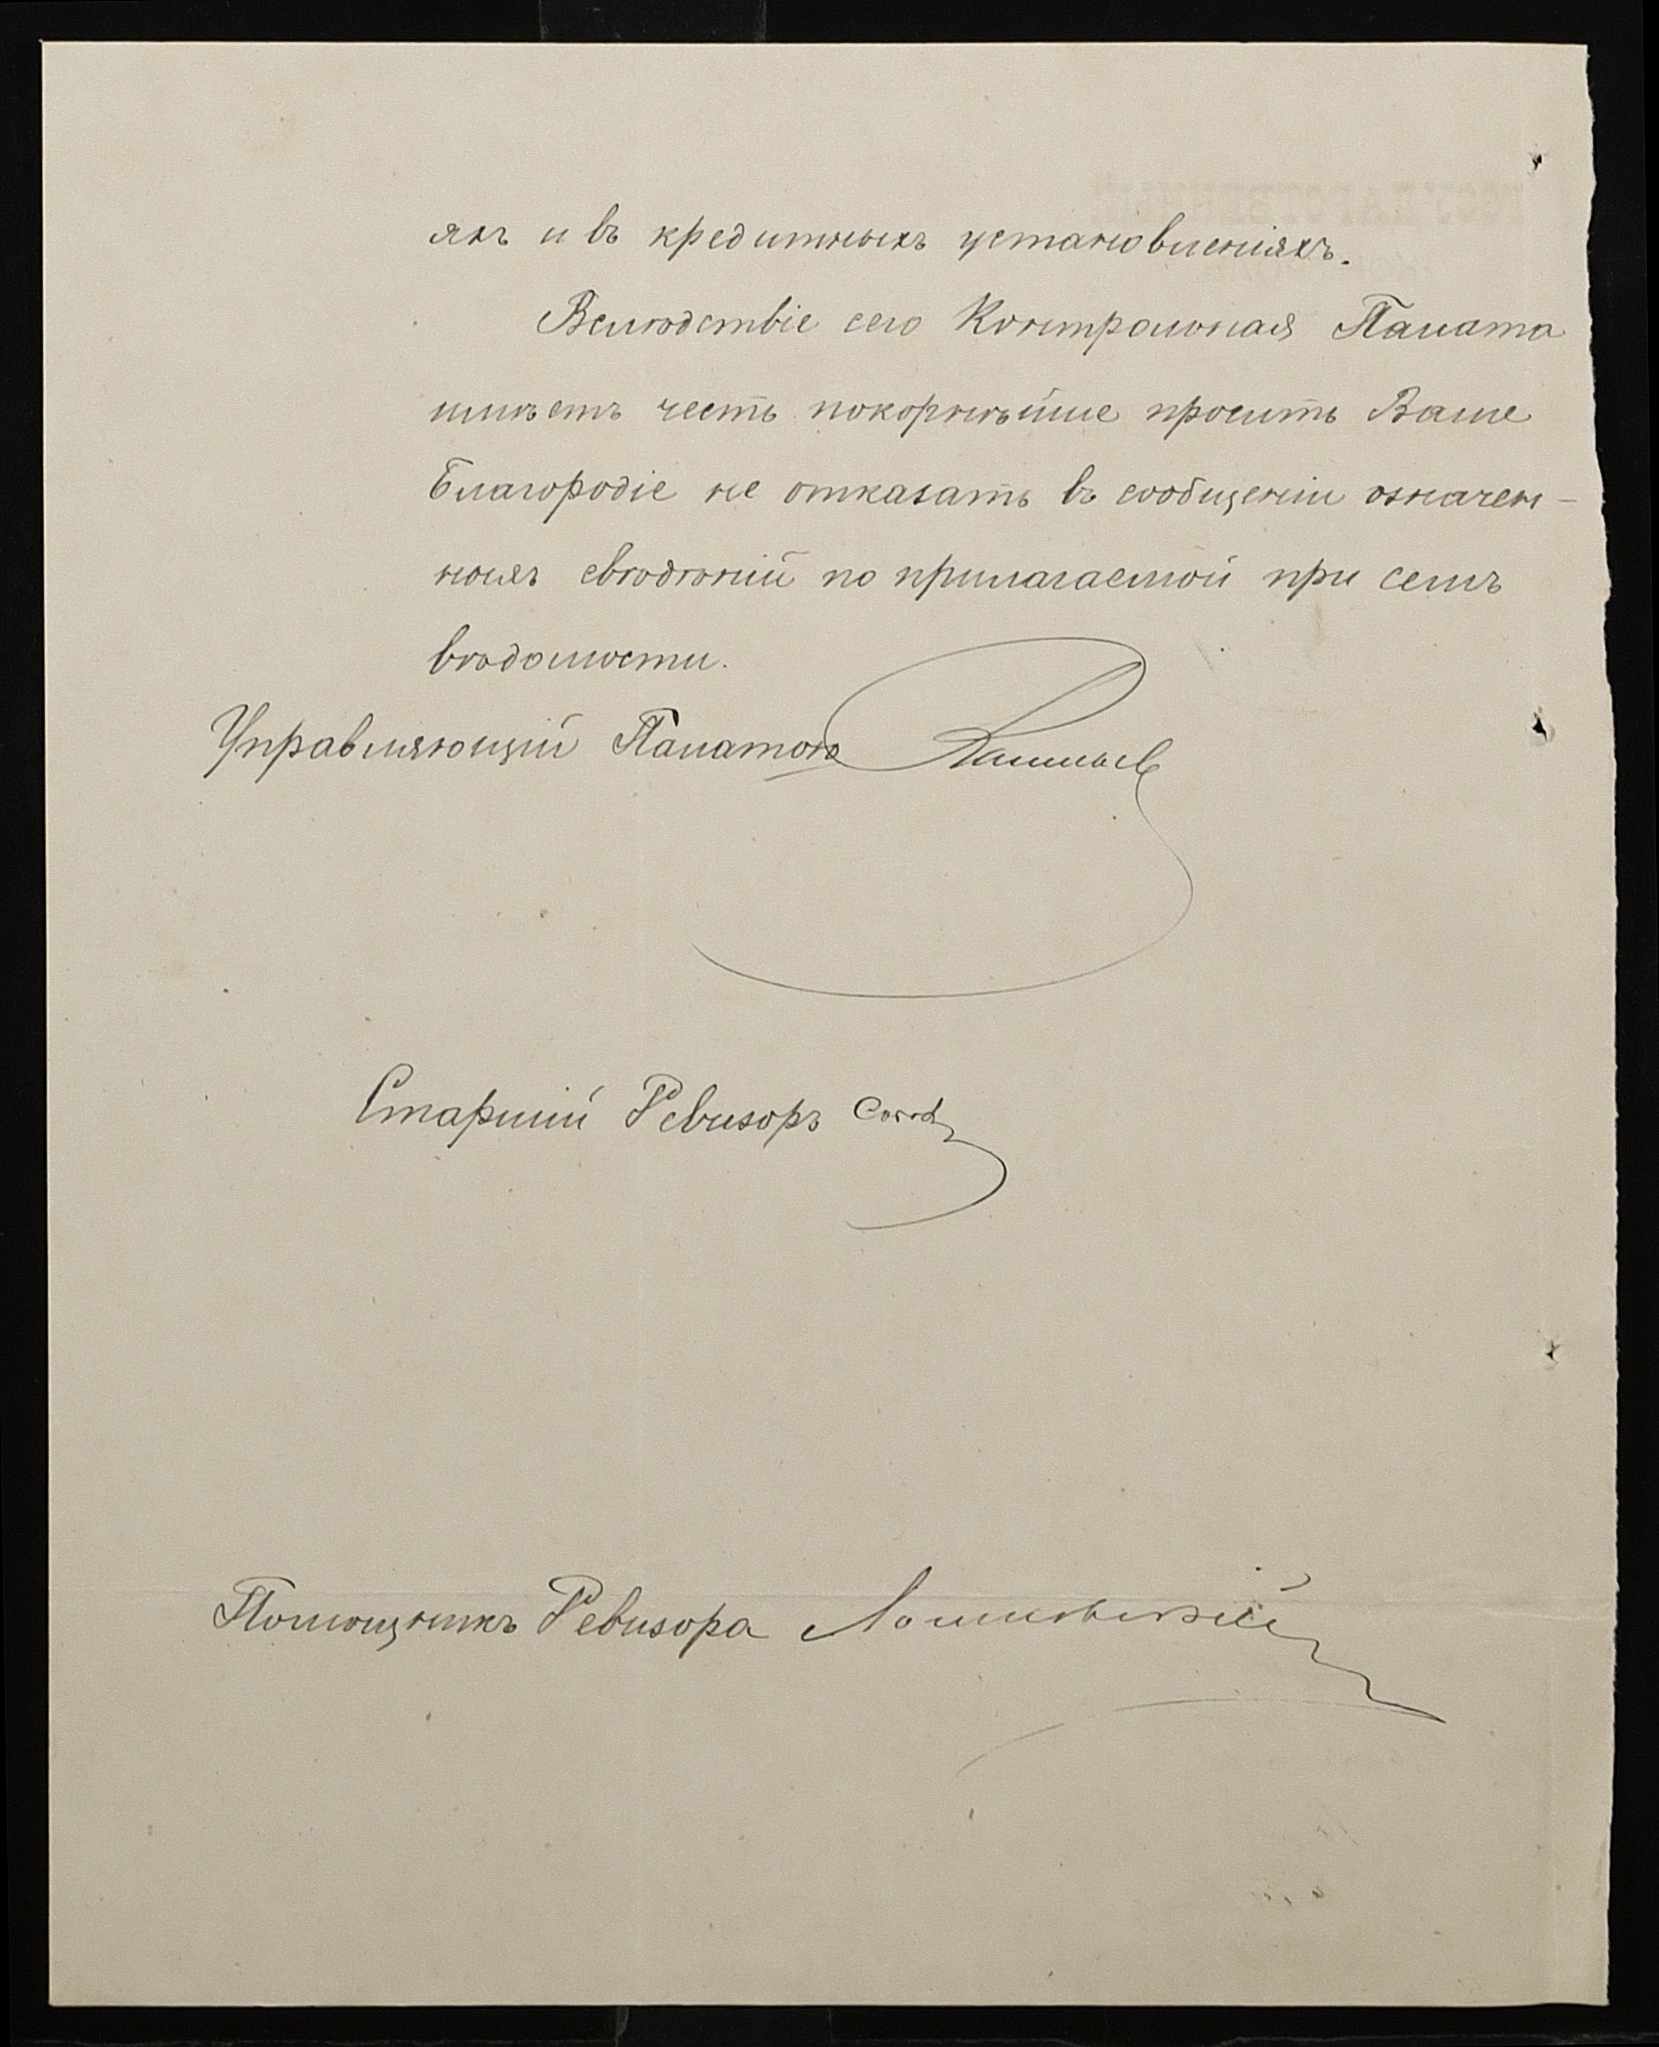 яхъ и въ кредитныхъ установленіяхъ.
Вслѣдствіе сего Контрольная Палата
имѣетъ честь покорнѣйше просить Ваше
Благородіе не отказать въ сообщеніи означен-
ныхъ свѣдѣній по прилагаемой при семъ
вѣдомости.
Управляющій Палатою
Старшій Ревизоръ
Помощникъ Ревизора